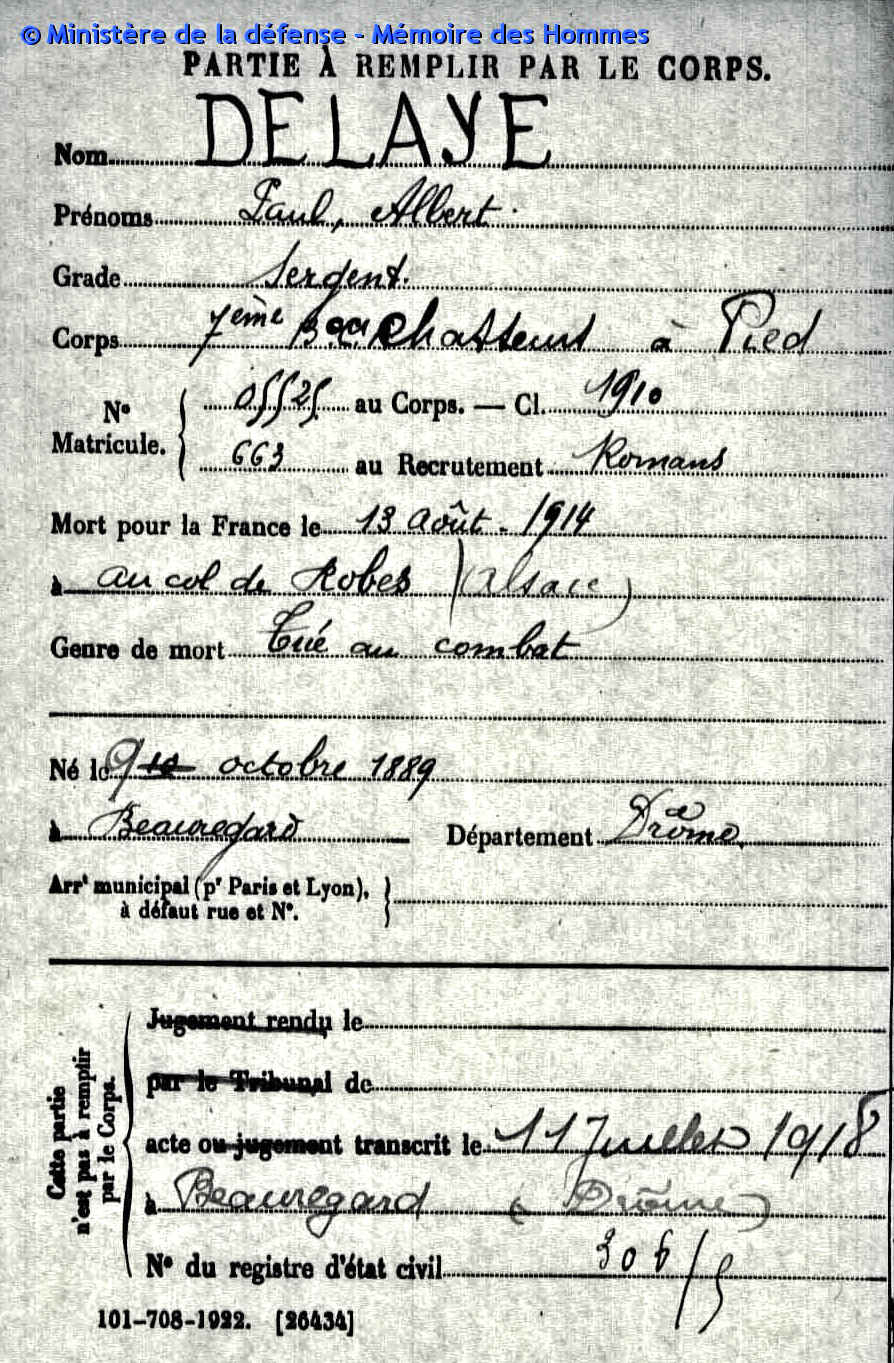 © Ministère de la défense - Mémoire des Hommes
PARTIE À REMPLIR PAR LE CORPS.
Nom DELAYE
Prénoms Paul, Albert
Grade Sergent.
Corps 7ème Bon Chasseurs à Pied
No Matricule. 05525 au Corps. — Cl. 1910
663 au Recrutement Romans
Mort pour la France le 13 août - 1914
à au col de Robes (Alsace)
Genre de mort Tué au combat
Né le 9 10 octobre 1889
à Beauregard Département Drôme
Arrt municipal (pr Paris et Lyon),
à défaut rue et No.
Cette partie
n'est pas à remplir
par le Corps.
Jugement rendu le
par le Tribunal de
acte ou jugement transcrit le 11 Juillet 1918
à Beauregard (Drôme)
No du registre d'état civil 306/5
101-708-1922. [26434]